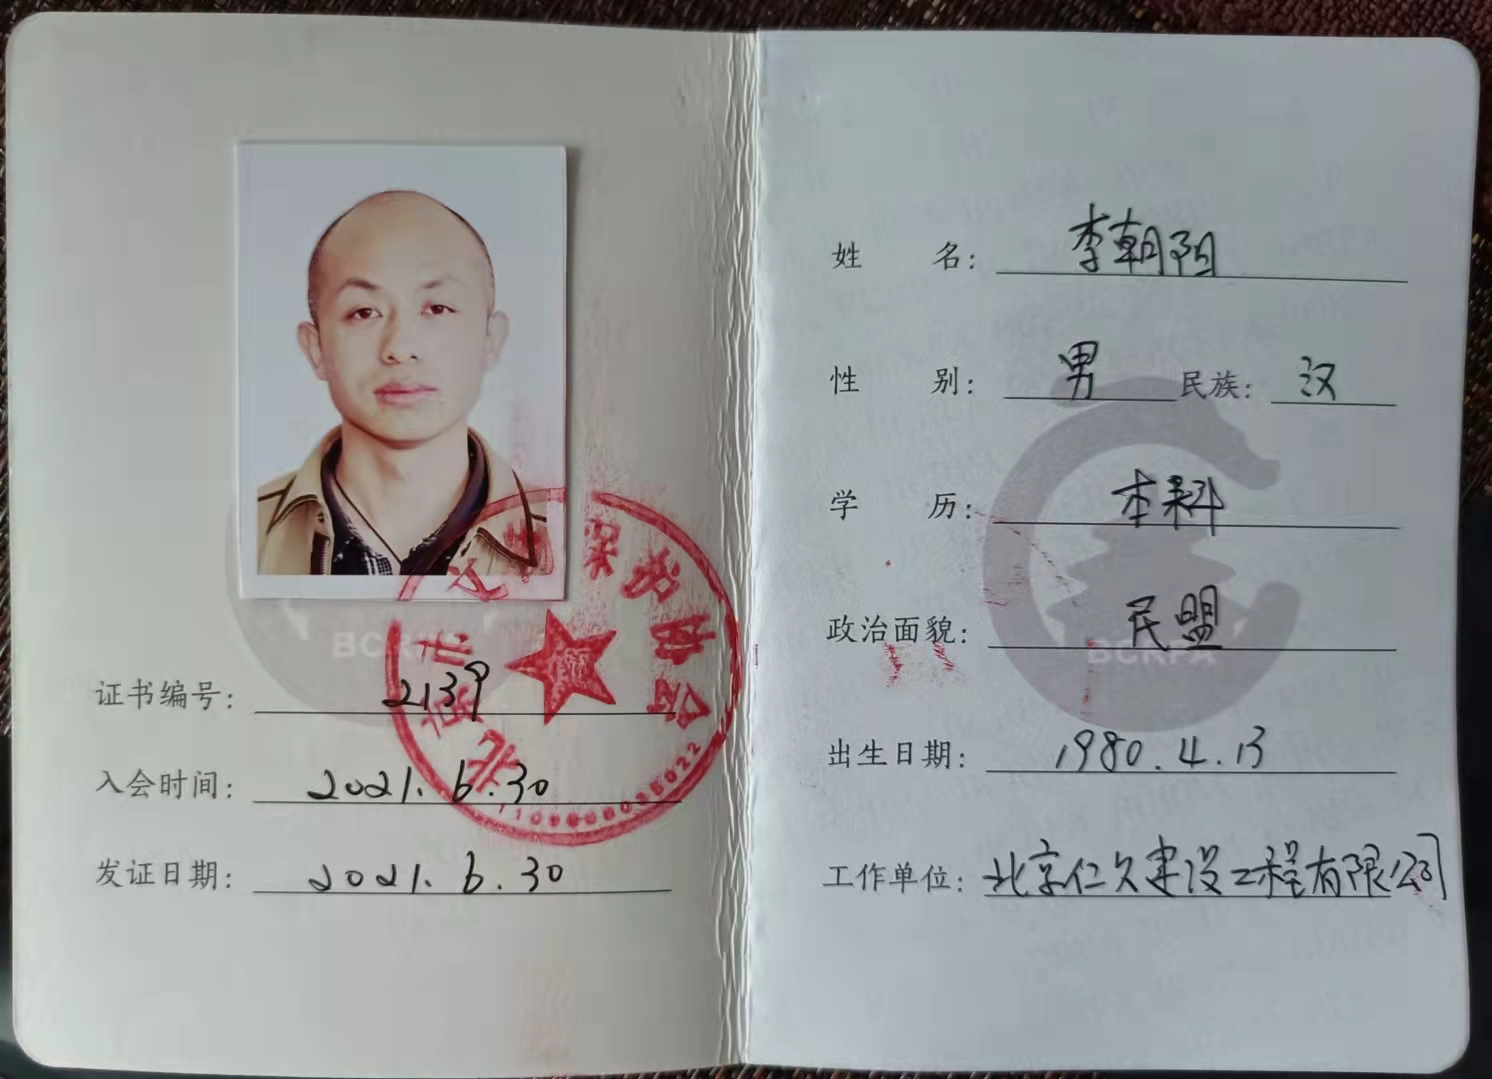 BCRPA
证书编号： 2139
入会时间： 2021.6.30
发证日期： 2021.6.30
北京市
探险协会
姓名： 李朝阳
性别： 男 民族： 汉
学历： 本科
政治面貌： 民盟
BCRPA
出生日期： 1980.4.13
工作单位： 北京仁久建设工程有限公司